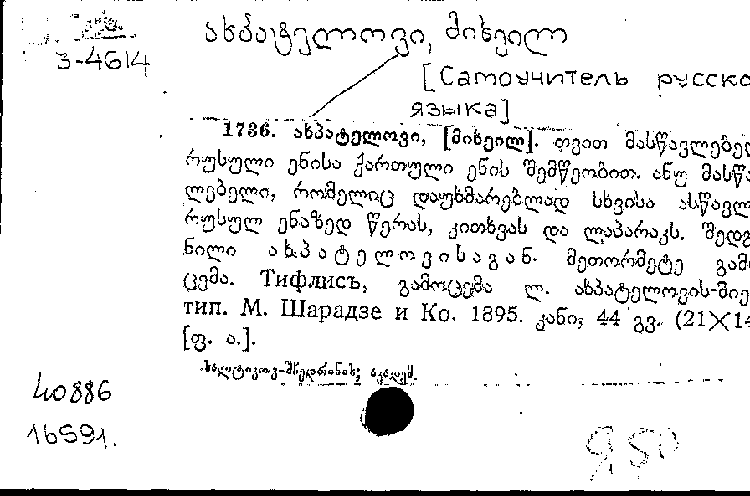 ახპატელოვი, მიხეილ
3-4614
[Самоучитель русско
языка]
1736. ახპატელოვი, [მიხეილ]. თვით მასწავლებელ
რუსული ენისა ქართული ენის შემწეობით. ანუ მასწა
ლებელი, რომელიც დაუხმარებლად სხვისა ასწავლ
რუსულ ენაზედ წერას, კითხვას და ლაპარაკს. შედგ
ნილი ახპატელოვისაგან. მეთორმეტე გამ
ცემა. Тифлисъ, გამოცემა ლ. ახპატელოვის-მიე
тип. М. Шарадзе и Ко. 1895. კანი, 44 გვ. (21X14
[ფ. ა.].
სალტიკოვ-შჩედრინის; აკადემ.
40886
16591.